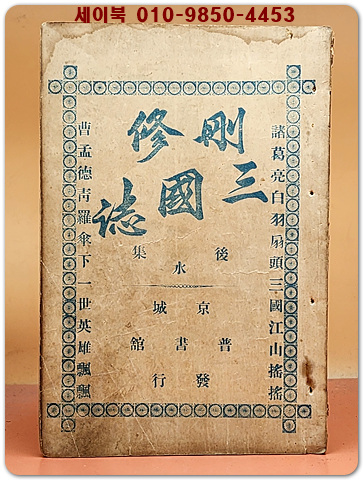 세이북 010-9850-4453
諸葛亮白羽扇頭三國江山搖搖
刪修
三國誌
後水集
京城
普書館
發行
曹孟德青羅傘下一世英雄飄飄